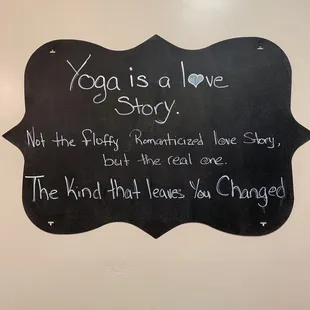 Yoga is a love
Story.
Not the fluffy Romanticized love Story,
but the real one.
The Kind that leaves You Changed